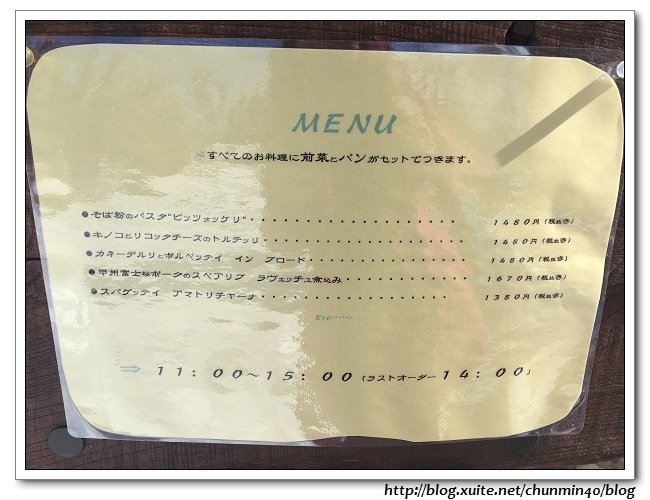 MENU
※すべてのお料理に前菜とパンがセットでつきます。
●そば粉のパスタ“ピッツォッケリ”・・・・・・・・・・・・・・・・・・・ 1480円(税抜き)
●キノコとリコッタチーズのトルテッリ・・・・・・・・・・・・・・・・・・ 1480円(税抜き)
●カネーデルリとポルペッテイ イン ブロード・・・・・・・・・・・・・・ 1480円(税抜き)
●甲州富士桜ポークのスペアリブ ラヴェッチュ煮込み・・・・・・・・・・・ 1670円(税抜き)
●スパゲッテイ アマトリチャーナ・・・・・・・・・・・・・・・・・・ 1380円(税抜き)
Etc……
⇒ 11:00~15:00(ラストオーダー14:00)
http://blog.xuite.net/chunmin40/blog